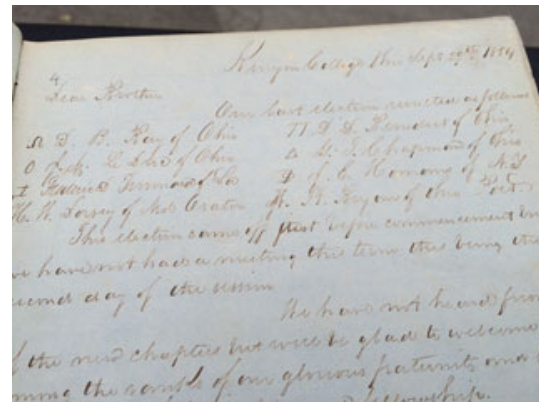 Kenyon College Ohio Sept 1854
Dear Brother
Our last election resulted as follows
D. B. Kay of Ohio D. D. Benedict of Ohio
of Ohio G. T. Chapman of Ohio
of La J. E. Homans of
H. H. Dorsey of Md Orator of Ohio Poet
This election came off just before commencement
we have not had a meeting this term this being the
second day of the session
We have not heard from
of the new chapters but will be glad to welcome
among the ranks of our glorious fraternity and
fellowship.